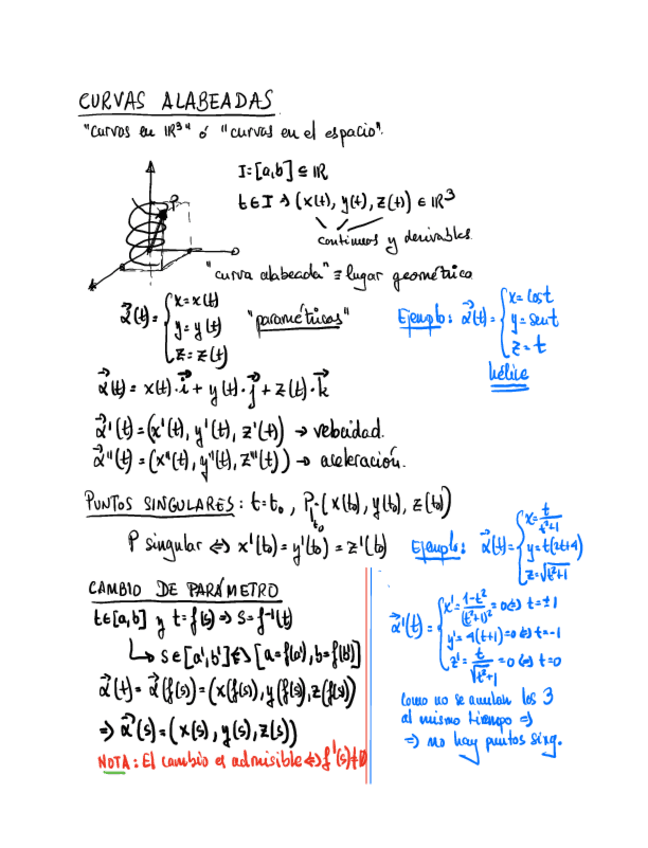 CURVAS ALABEADAS
"curvas en IR³" ó "curvas en el espacio".
I=[a,b] ⊆ IR
t∈I → (x(t), y(t), z(t)) ∈ IR³
continuas y derivables.
P
"curva alabeada" ≡ lugar geométrico
α⃗(t)= { x=x(t)
y=y(t)
z=z(t)
"paramétricas"
Ejemplo: α⃗(t)= { x=cos t
y=sen t
z=t
hélice
α⃗(t)= x(t)·i⃗ + y(t)·j⃗ + z(t)·k⃗
α⃗'(t)=(x'(t), y'(t), z'(t)) → velocidad.
α⃗''(t)=(x''(t), y''(t), z''(t)) → aceleración.
PUNTOS SINGULARES: t=t₀, P_t₀(x(t₀), y(t₀), z(t₀))
P singular ⇔ x'(t₀)=y'(t₀)=z'(t₀)
Ejemplo: α⃗(t)= { x=t/(t²+1)
y=t(2t+4)
z=√(t²+1)
CAMBIO DE PARÁMETRO
t∈[a,b] y t=f(s) ⇒ s=f⁻¹(t)
↳ s∈[a',b'] ⇔ [a=f(a'), b=f(b')]
α⃗(t)=α⃗(f(s))=(x(f(s)), y(f(s)), z(f(s)))
⇒ α⃗(s)=(x(s), y(s), z(s))
NOTA: El cambio es admisible ⇔ f'(s)≠0
α⃗'(t)= { x'=(1-t²)/(t²+1)²=0 ⇔ t=±1
y'=4(t+1)=0 ⇔ t=-1
z'=t/√(t²+1)=0 ⇔ t=0
como no se anulan los 3
al mismo tiempo ⇒
⇒ no hay puntos sing.